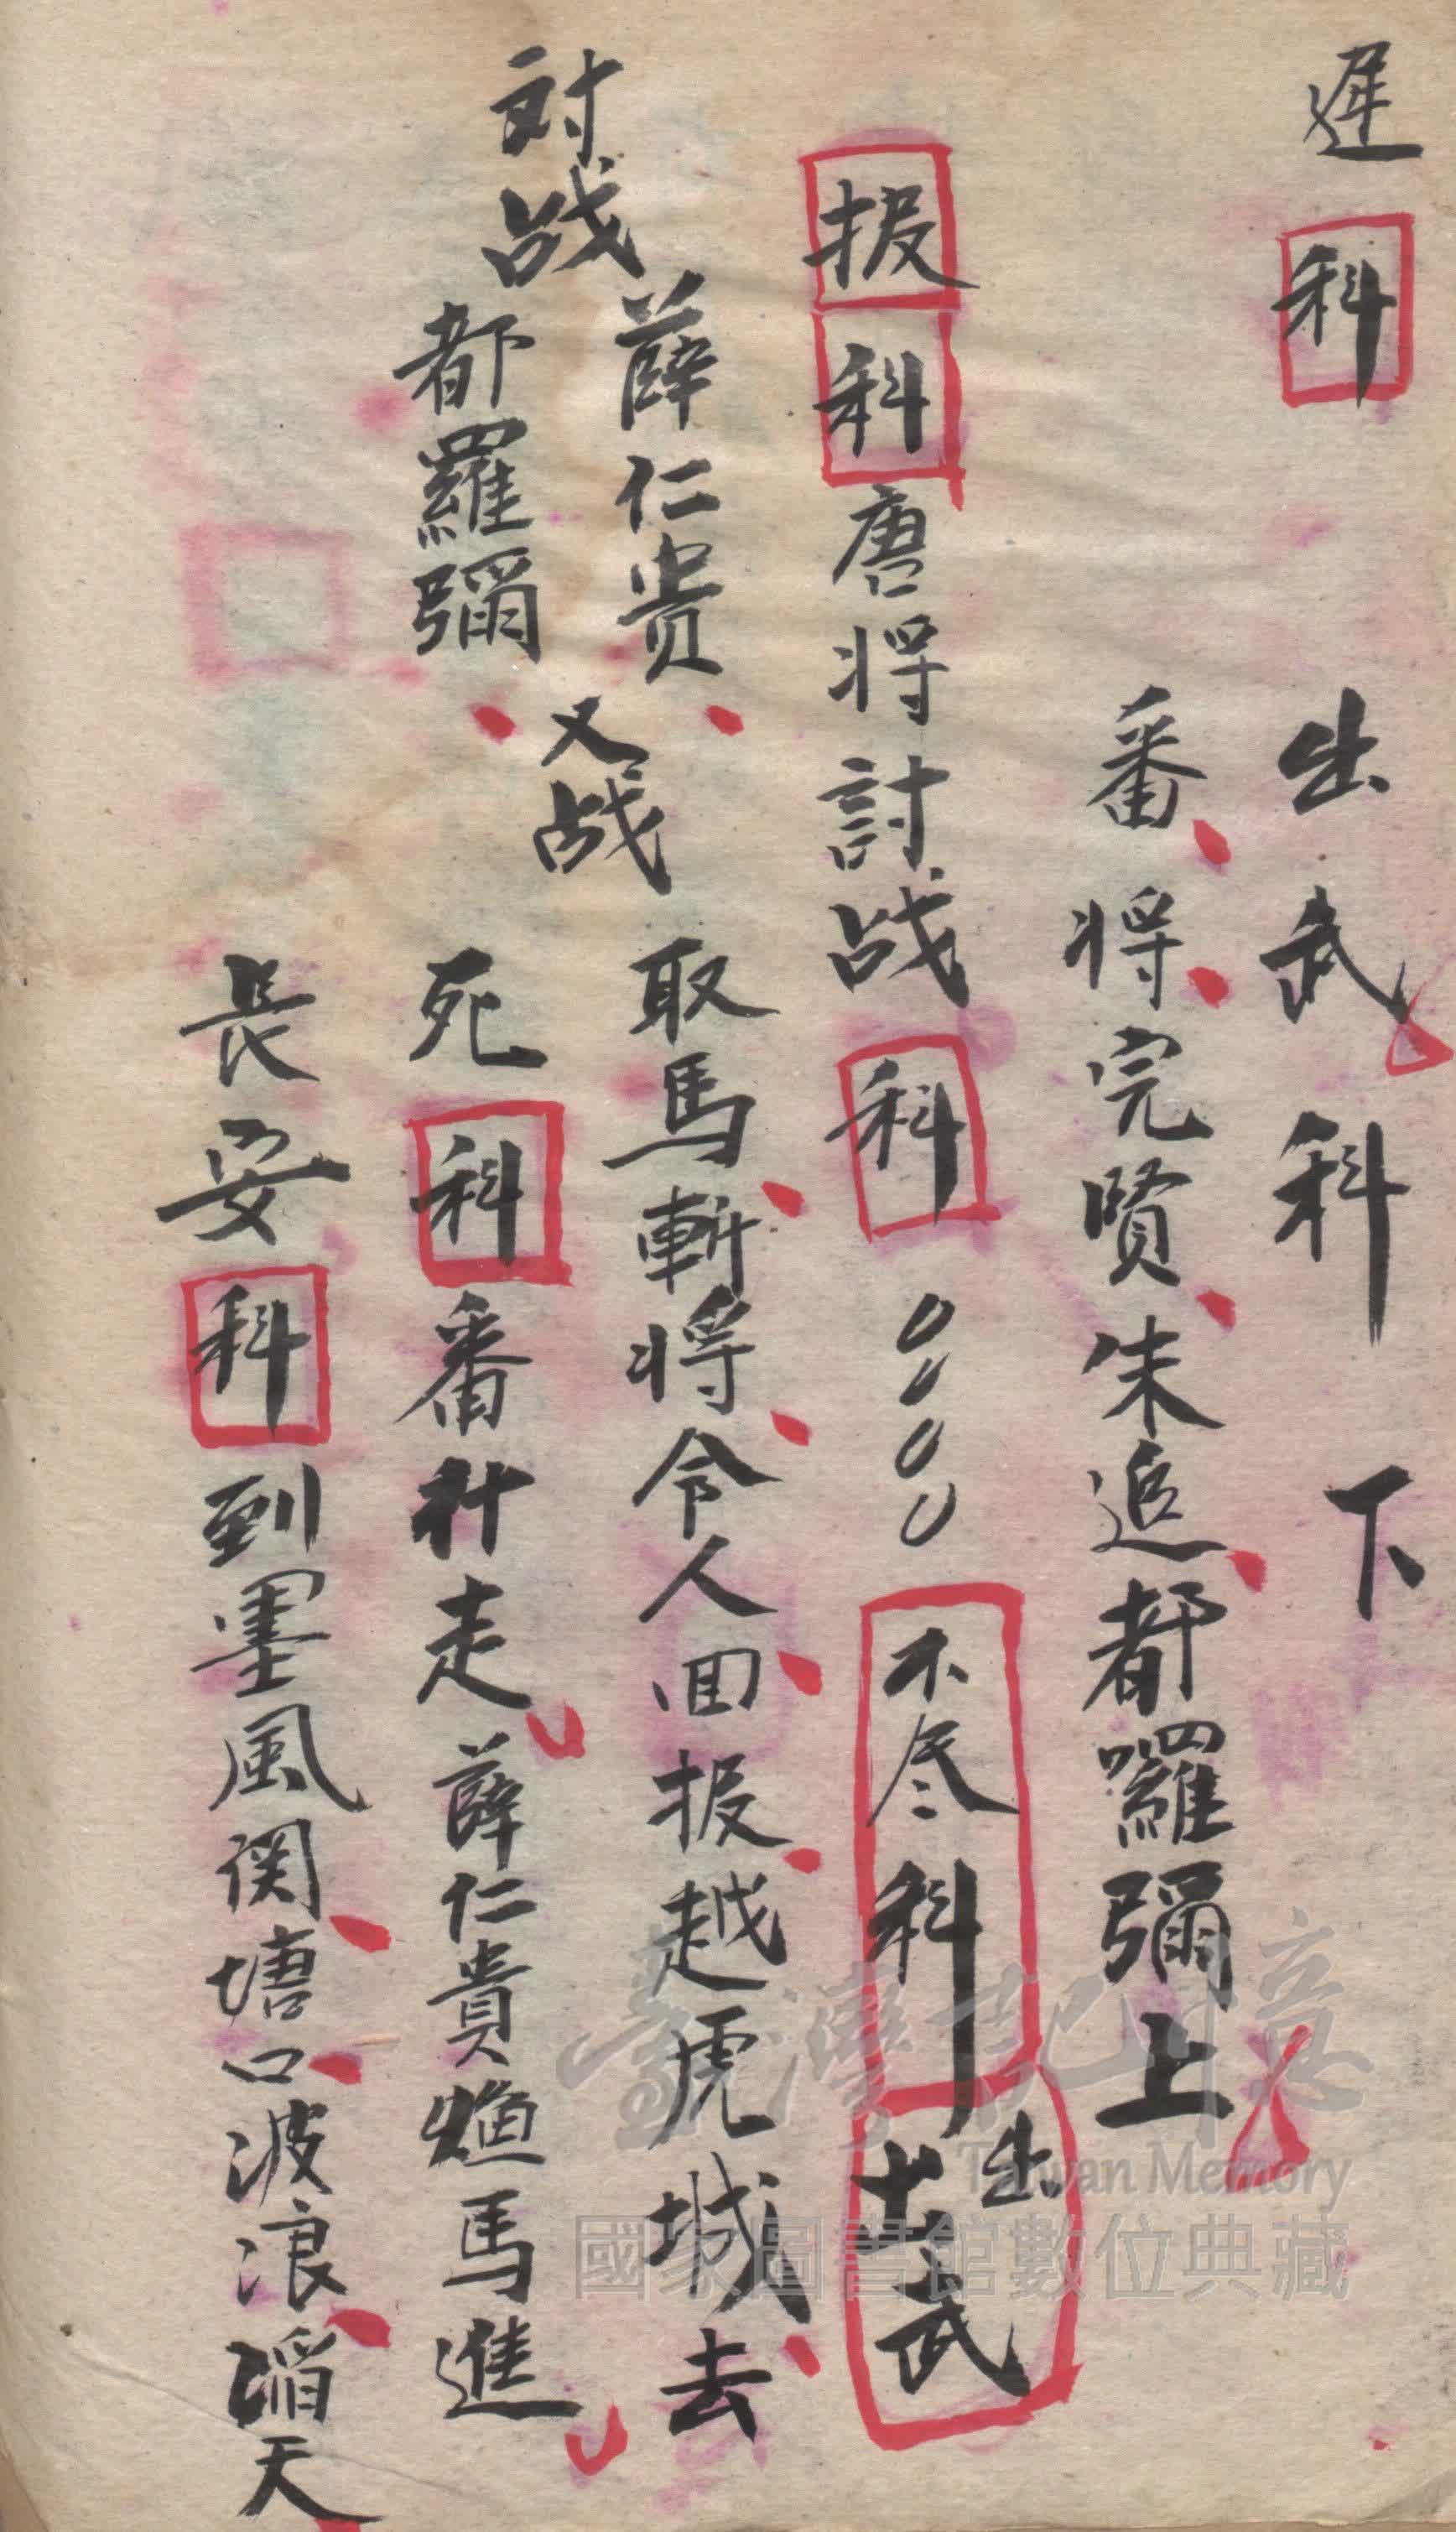 遅科　出武科　下
番将完賢朱追都囉彌上
报科唐将討战科　不尽科出武
出
討战　薛仁贵　都羅彌　又战
取馬斬将令人回报越虎城去
死科番计走薛仁貴 馬進
長安科到墨風関塘口波浪滔天
臺灣記憶
Taiwan Memory
國家圖書館數位典藏